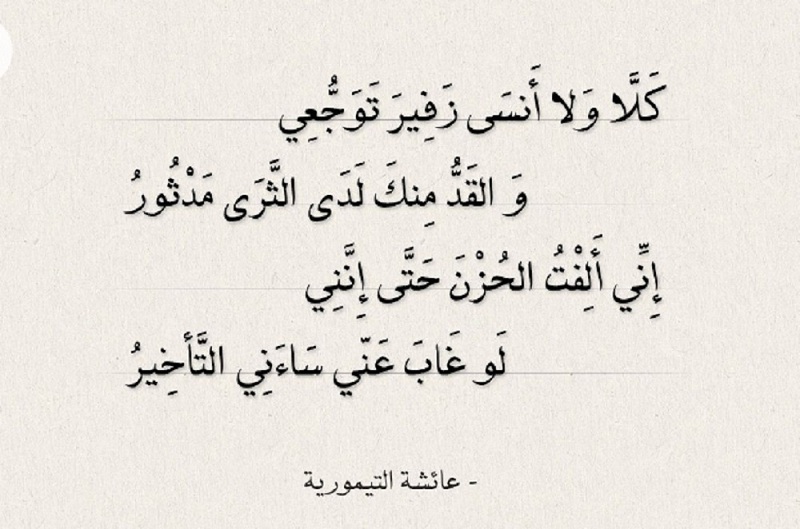 كَلَّا وَلا أَنسَى زَفِيرَ تَوَجُّعِي
وَ القَدُّ مِنكَ لَدَى الثَّرَى مَدْثُورُ
إِنِّي أَلِفْتُ الحُزْنَ حَتَّى إِنَّنِي
لَو غَابَ عَنّي سَاءَنِي التَّأخِيرُ
- عائشة التيمورية